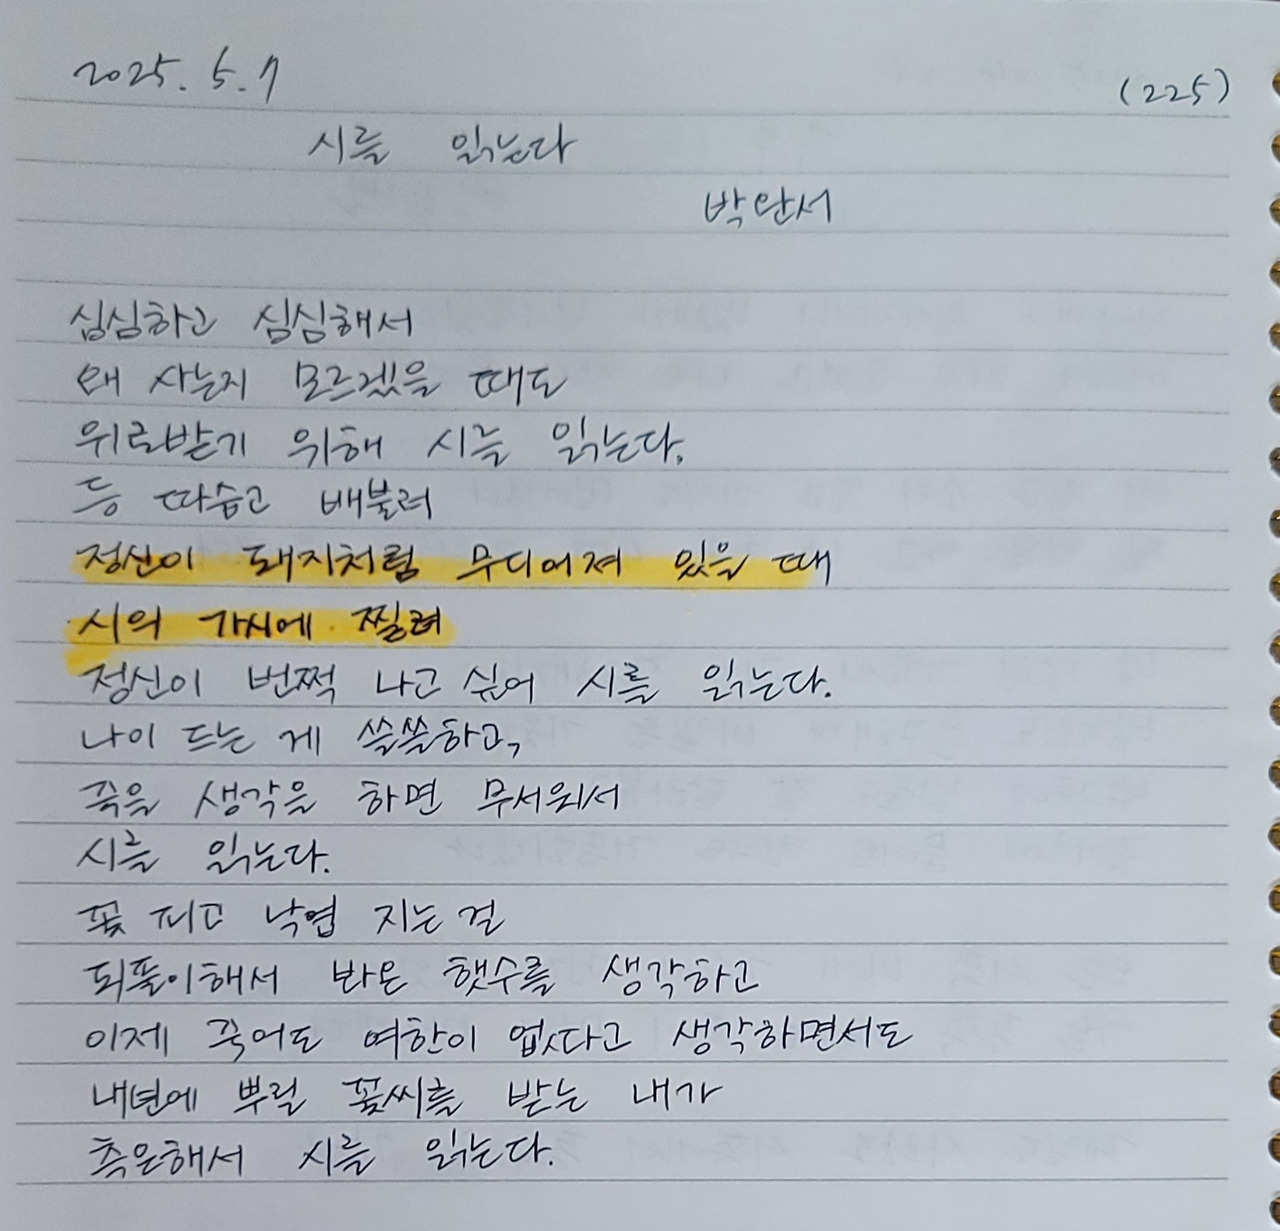 2025. 5. 7
(225)
시를 읽는다
박완서
심심하고 심심해서
왜 사는지 모르겠을 때도
위로받기 위해 시를 읽는다.
등 따습고 배불러
정신이 돼지처럼 무디어져 있을 때
시의 가시에 찔려
정신이 번쩍 나고 싶어 시를 읽는다.
나이 드는 게 쓸쓸하고,
죽을 생각을 하면 무서워서
시를 읽는다.
꽃 피고 낙엽 지는 걸
되풀이해서 봐온 햇수를 생각하고
이제 죽어도 여한이 없다고 생각하면서도
내년에 뿌릴 꽃씨를 받는 내가
측은해서 시를 읽는다.